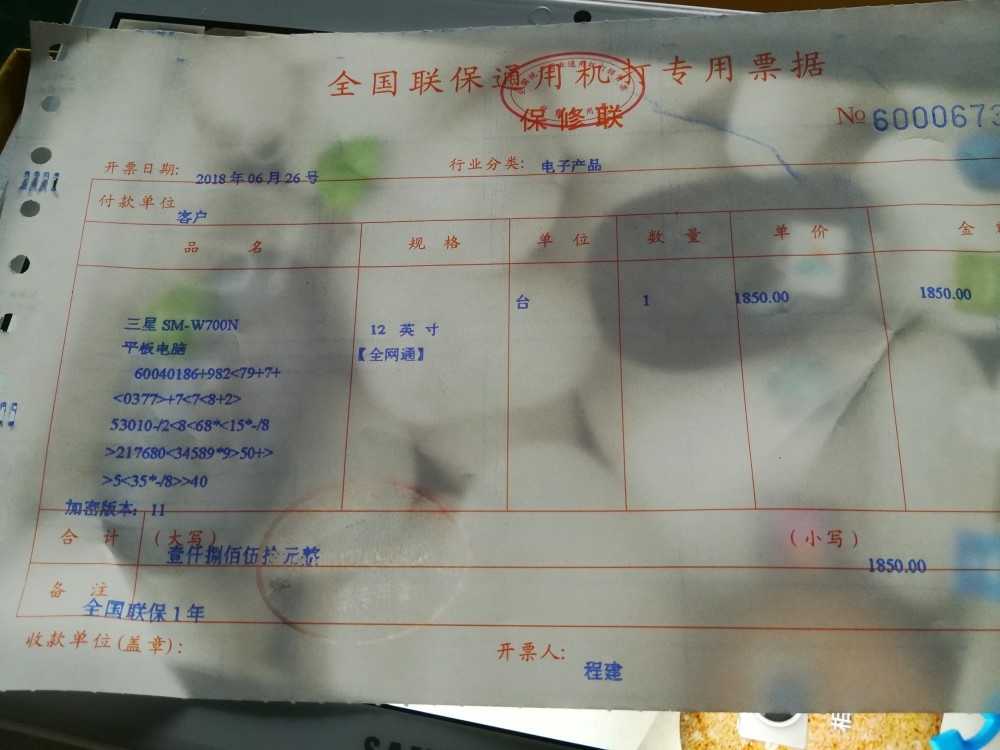 全国联保通用机打专用票据
保修联
№ 6000673
开票日期: 2018年06月26号 行业分类: 电子产品
付款单位 客户
品 名 规 格 单 位 数 量 单 价 金
三星 SM-W700N 12 英 寸 台 1 1850.00 1850.00
平板电脑 【全网通】
60040186+982<79+7+
<0377>+7<7<8+2>
53010-/2<8<68*<15*-/8
>217680<34589*9>50+>
>5<35*-/8>>40
加密版本: 11
合 计 (大写) 壹仟捌佰伍拾元整 (小写) 1850.00
备 注 全国联保1年
收款单位(盖章): 开票人: 程建